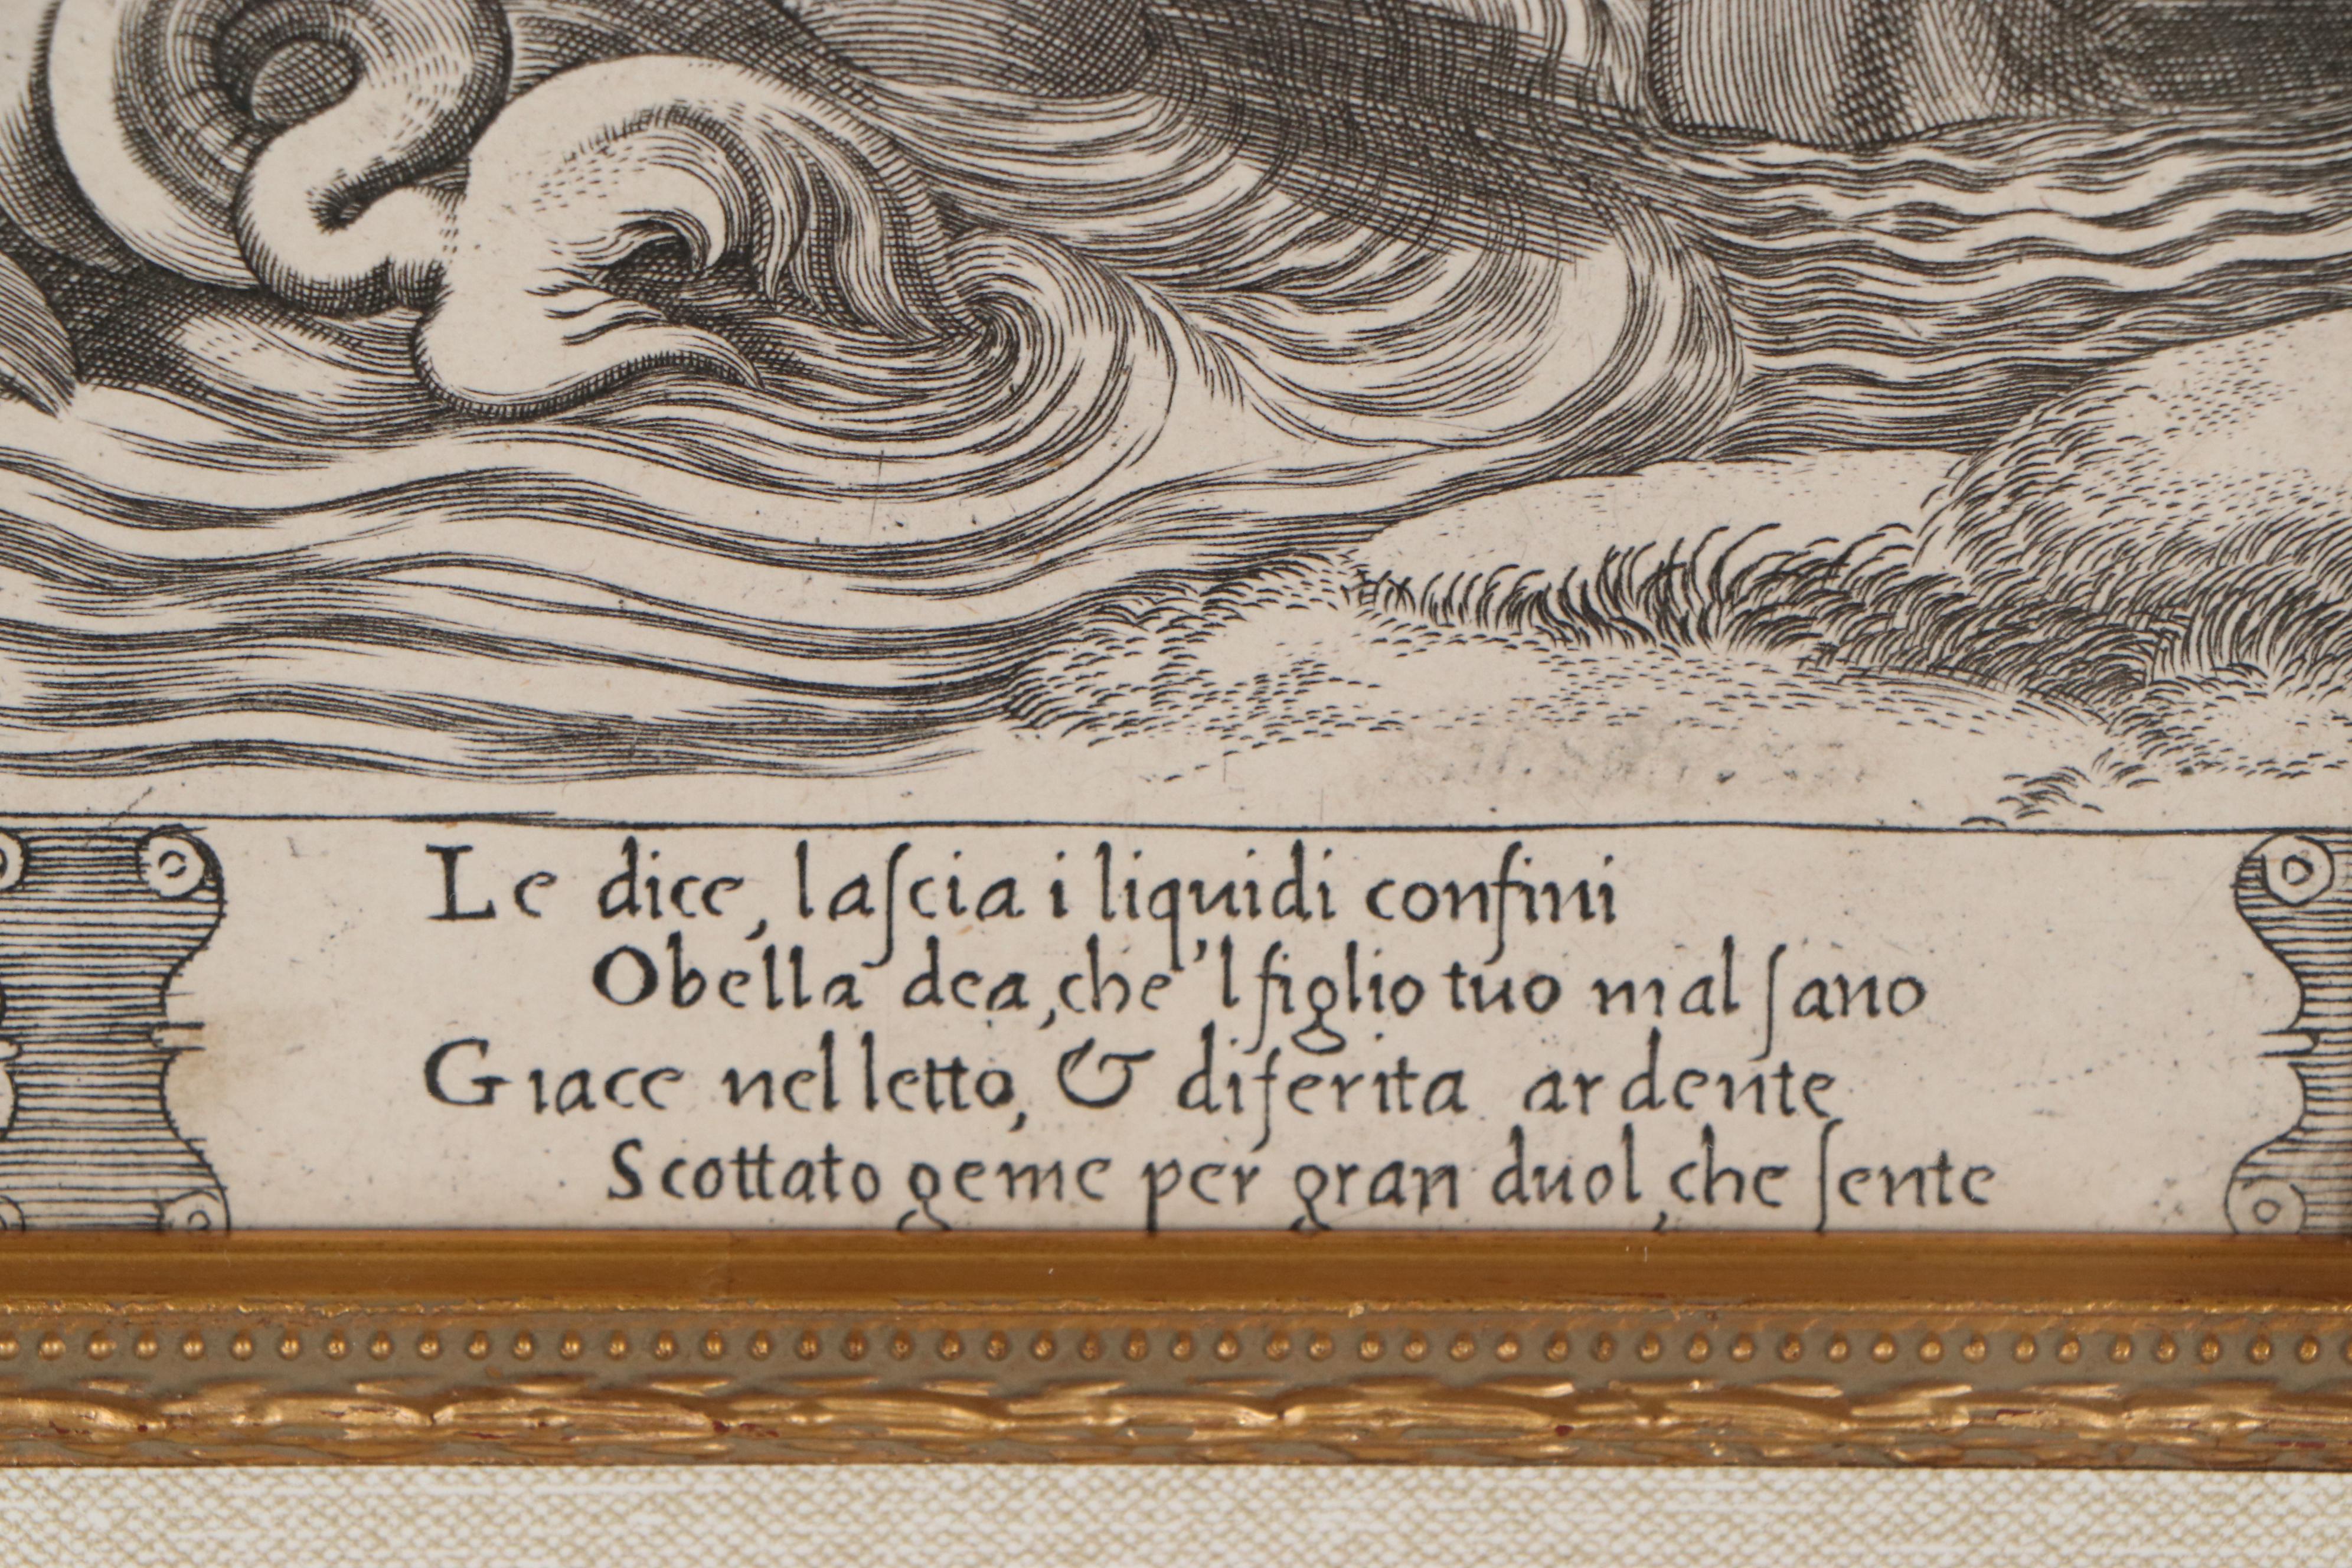 Le dice, laſcia i liquidi confini
Obella dea, che'l figlio tuo mal ſano
Giace nel letto, & di ferita ardente
Scottato geme per gran duol, che ſente